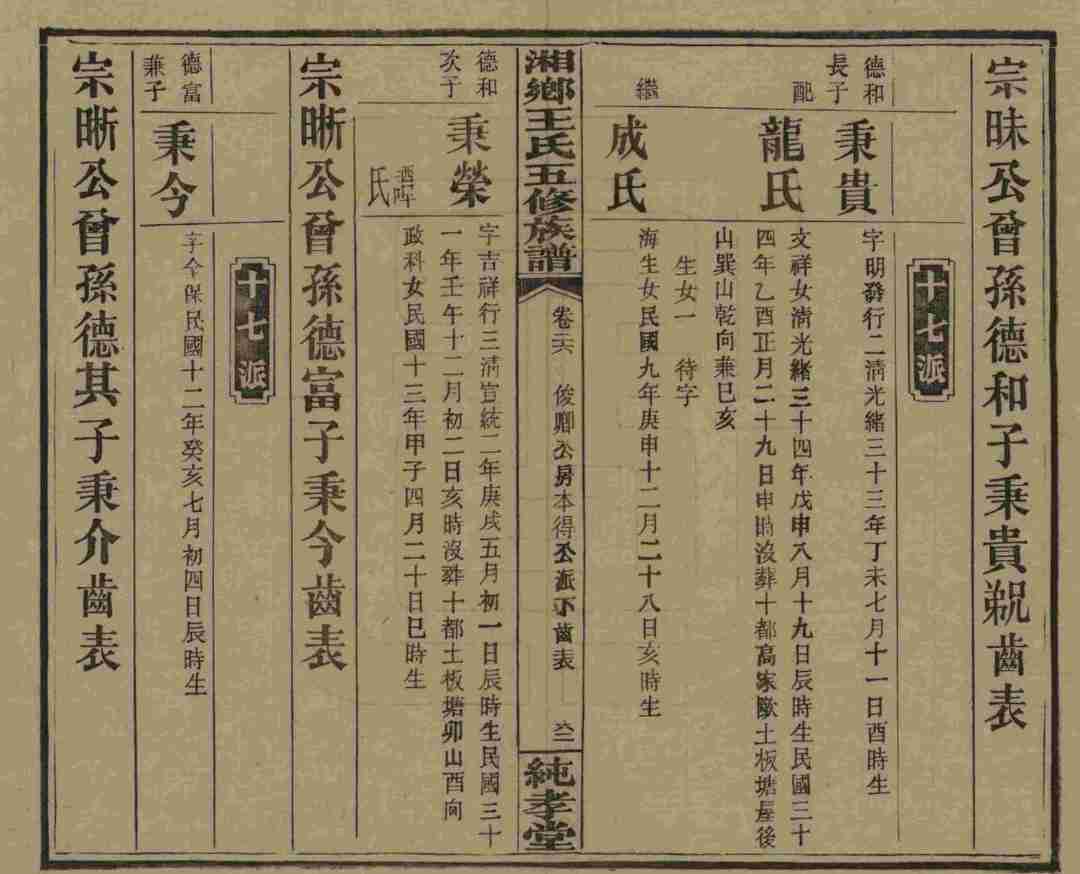 宗昧公曾孫德和子秉貴㒭齒表
十七派
德和
長子
秉貴
字明發行二清光緒三十三年丁未七月十一日酉時生
配
龍氏
文祥女清光緒三十四年戊申八月十九日辰時生民國三十
四年乙酉正月二十九日申時沒葬十都高家歐土板塘屋後
山巽山乾向兼巳亥
生女一 待字
繼
成氏
海生女民國九年庚申十二月二十八日亥時生
湘鄉王氏五修族譜
卷六 俊卿公房本得公派下齒表
純孝堂
德和
次子
秉榮
字吉祥行三清宣統二年庚戌五月初一日辰時生民國三十
一年壬午十二月初二日亥時沒葬十都土板塘卯山酉向
氏
政科女民國十三年甲子四月二十日巳時生
宗晰公曾孫德富子秉今齒表
十七派
德富
兼子
秉今
字今保民國十二年癸亥七月初四日辰時生
宗晰公曾孫德其子秉介齒表